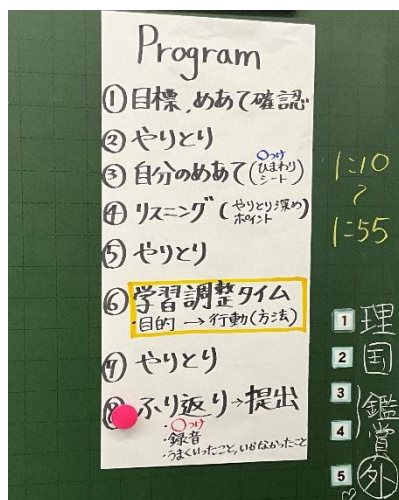 Program
①目標、めあて確認
②やりとり
③自分のめあて(○つけ ひまわりシート)
④リスニング(やりとり深めポイント)
⑤やりとり
⑥学習調整タイム
・目的→行動(方法)
⑦やりとり
⑧ふり返り→提出
・○つけ
・録音
・うまくいったこと、いかなかったこと
1:10
〜
1:55
1 理
2 国
3 鑑
4 賞
5 外